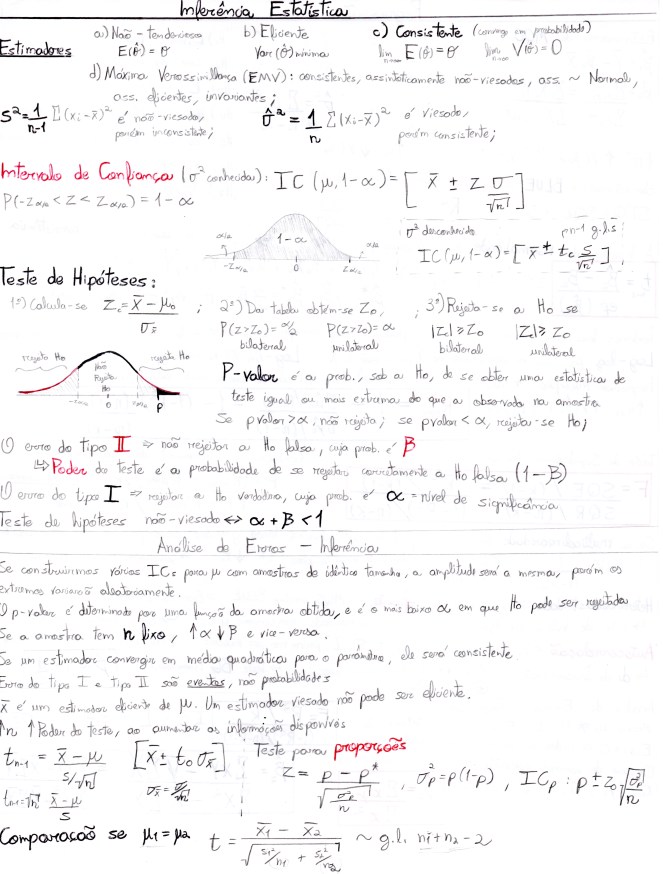 Inferência Estatística
Estimadores a) Não-tendenciosa b) Eficiente c) Consistente (converge em probabilidade)
E(θ̂) = θ Var(θ̂) mínima lim n→∞ E(θ̂) = θ lim n→∞ V(θ̂) = 0
d) Máxima Verossimilhança (EMV): consistentes, assintoticamente não-viesados, ass. ~ Normal,
ass. eficientes, invariantes;
S² = 1/(n-1) Σ(xi-x̄)² é não-viesado, porém inconsistente; σ̂² = 1/n Σ(xi-x̄)² é viesado, porém consistente;
Intervalo de Confiança (σ² conhecida): IC (μ, 1-α) = [x̄ ± Z σ/√n]
P(-Zα/2 < Z < Zα/2) = 1-α
α/2 1-α α/2
-Zα/2 0 Zα/2
σ² desconhecido p/ n-1 g.l.s
IC(μ, 1-α) = [x̄ ± tc S/√n],
Teste de Hipóteses:
1º) Calcula-se Zc = (x̄ - μ0)/σx̄ ; 2º) Da tabela obtém-se Z0, ; 3º) Rejeita-se a H0 se
P(Z>Z0) = α/2 P(Z>Z0) = α |Zc| ≥ Z0 |Zc| ≥ Z0
bilateral unilateral bilateral unilateral
rejeita H0 não Rejeita H0 rejeita H0
-Zα/2 0 Zα/2 P
P-valor é a prob., sob a H0, de se obter uma estatística de
teste igual ou mais extrema do que a observada na amostra
Se pvalor > α, não rejeita; se pvalor < α, rejeita-se H0;
O erro do tipo II ⇒ não rejeitar a H0 falsa, cuja prob. é β
↳ Poder do teste é a probabilidade de se rejeitar corretamente a H0 falsa (1-β)
O erro do tipo I ⇒ rejeitar a H0 verdadeira, cuja prob. é α = nível de significância
Teste de hipóteses não-viesado ⇔ α + β < 1
Análise de Erros - Inferência
Se construirmos vários ICs para μ com amostras de idêntico tamanho, a amplitude será a mesma, porém os
extremos variarão aleatoriamente.
O p-valor é determinado por uma função da amostra obtida, e é o mais baixo α em que H0 pode ser rejeitada
Se a amostra tem n fixo, ↑α ↓β e vice-versa.
Se um estimador convergir em média quadrática para o parâmetro, ele será consistente
Erro do tipo I e tipo II são eventos, não probabilidades
x̄ é um estimador eficiente de μ. Um estimador viesado não pode ser eficiente.
↑n ↑Poder do teste, ao aumentar as informações disponíveis
tn-1 = (x̄ - μ)/(S/√n) [x̄ ± t0 σx̄] Teste para proporções
tn-1 = √n (x̄ - μ)/S σx̄ = σ/√n Z = (p - p*)/√(σp²/n) , σp² = p(1-p) , ICp : p ± Z0 √(σp²/n)
Comparação se μ1 = μ2 t = (x̄1 - x̄2)/√(S1²/n1 + S2²/n2) ~ g.l. n1+n2-2